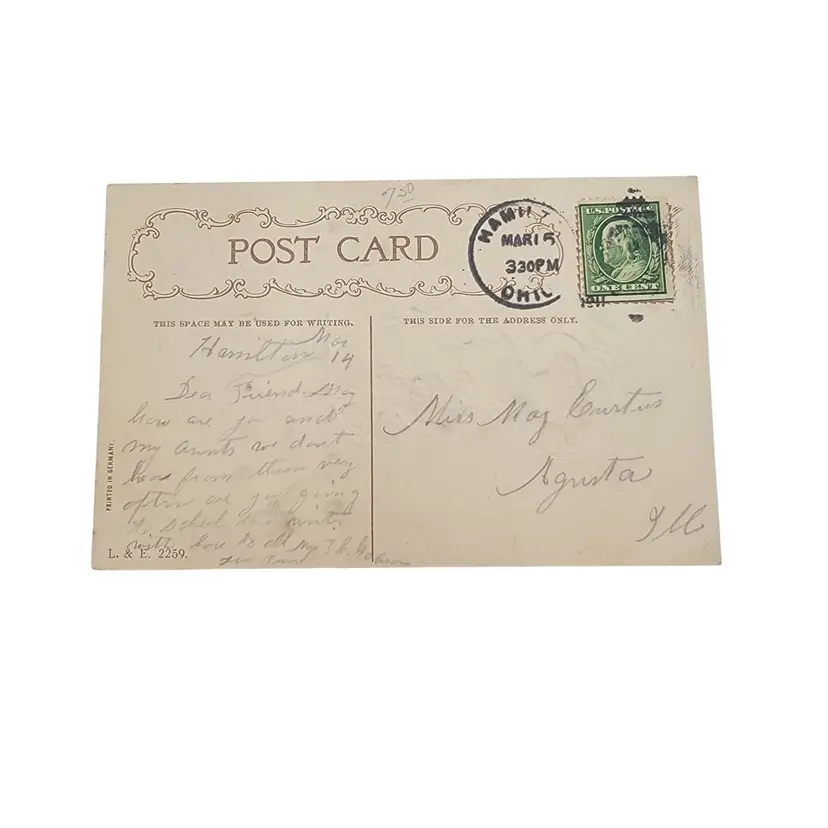 7 50
POST CARD
HAMILT
MAR 15
330PM
OHIO
1911
U.S. POSTAGE
ONE CENT
THIS SPACE MAY BE USED FOR WRITING.
THIS SIDE FOR THE ADDRESS ONLY.
Hamilton Mar
14
Dear Friend May
how are you and
my aunts we don't
hear from them very
often are you going
to school this winter
with love to all
Miss May Curtus
Agusta
Ill
PRINTED IN GERMANY.
L. & E. 2259.